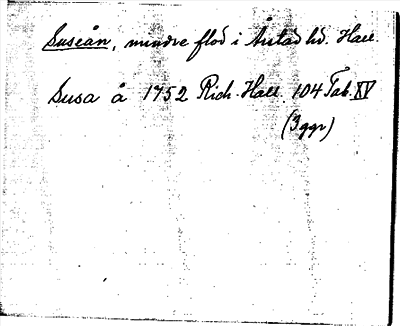 Suseån, mindre flod i Årstad hd. Hall.
Susa å 1752 Rich. Hall. 104 Tab. XV
(3 ggr)